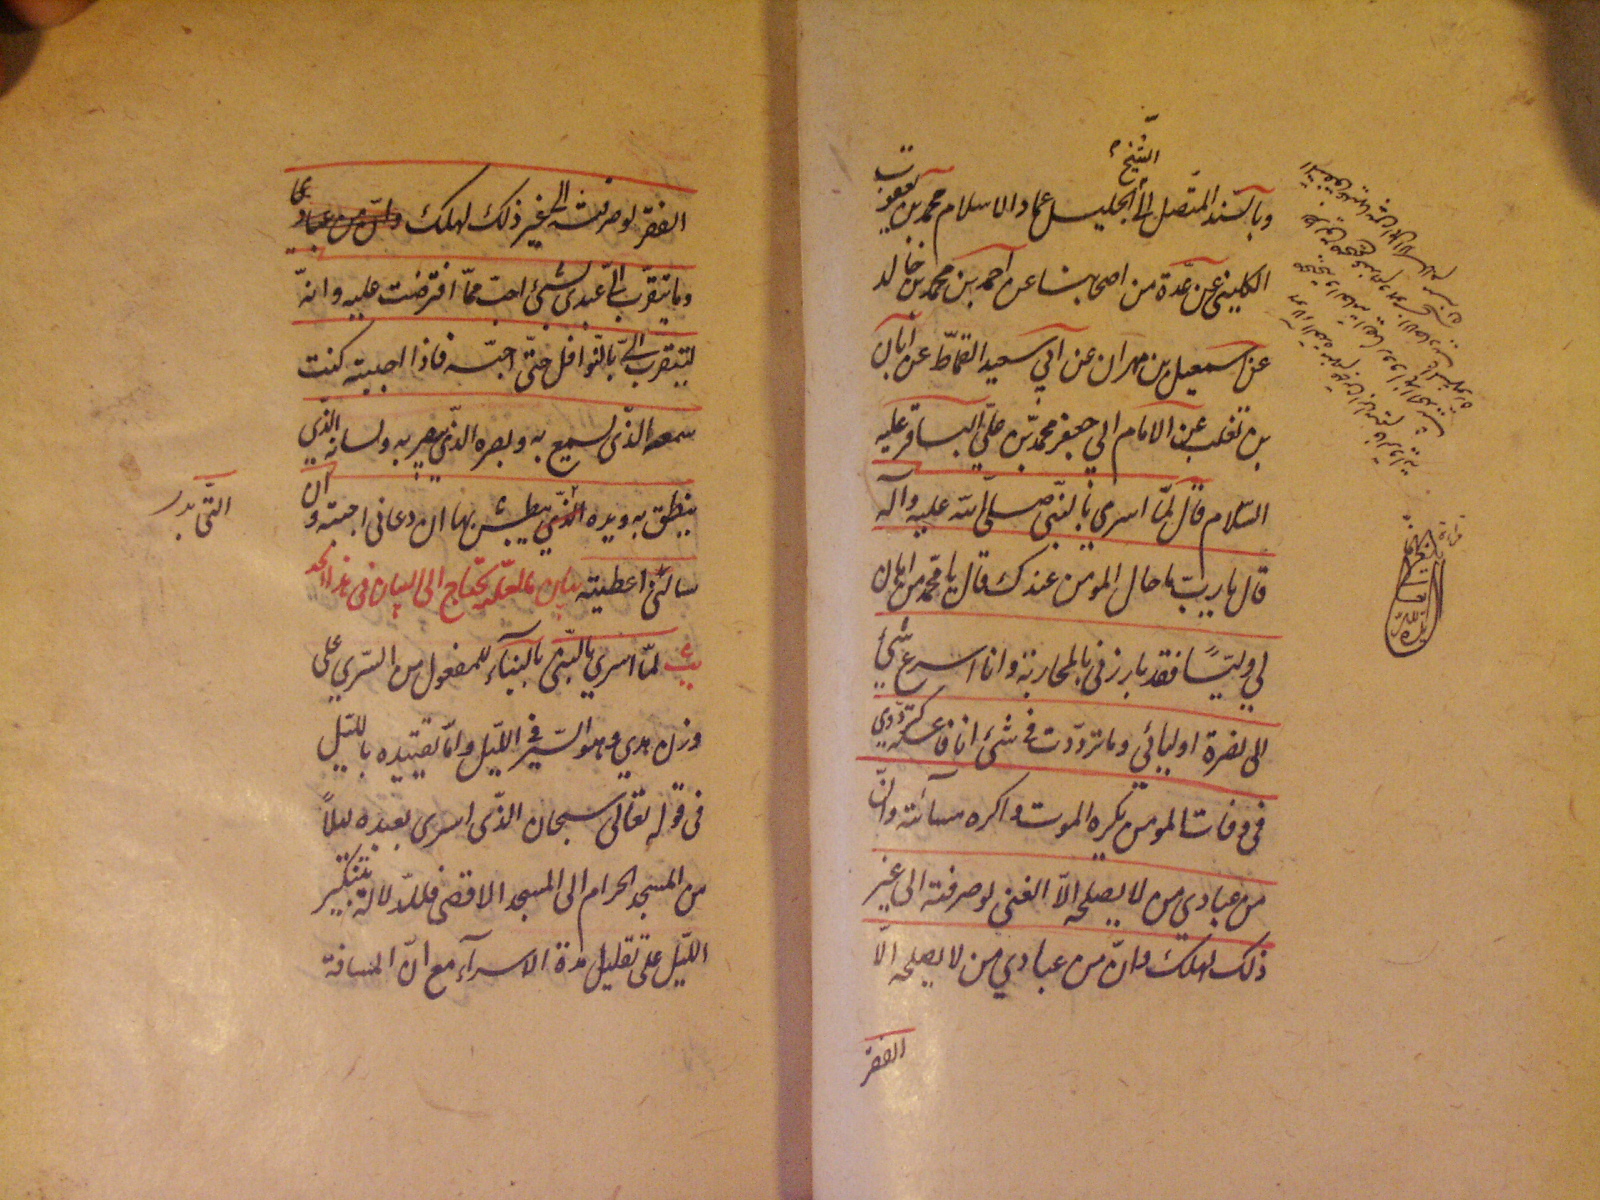 الشيخ
وبالسند المتصل الى الجليل عماد الاسلام محمد بن يعقوب
الكليني عن عدة من اصحابنا عن احمد بن محمد بن خالد
عن اسمعيل بن مهران عن ابي سعيد القماط عن ابان
بن تغلب عن الامام ابي جعفر محمد بن علي الباقر عليه
السلام قال لمّا اسري بالنبي صلى الله عليه وآله
قال يا ربّ ما حال المومن عندك قال يا محمد من اهان
لي وليّاً فقد بارزني بالمحاربة وانا اسرع شئ
الى نصرة اوليائي وما تردّدت في شئ انا فاعله كتردّدي
في وفات المومن يكره الموت واكره مسائته وانّ
من عبادي من لا يصلحه الّا الغنى لو صرفته الى غير
ذلك لهلك وانّ من عبادي من لا يصلحه الّا
الفقر
الفقر لو صرفته الى غير ذلك لهلك وانّ من عبادي
وما يتقرب اليّ عبدي بشئ احبّ ممّا افترضت عليه وانّه
ليتقرب اليّ بالنوافل حتّى احبّه فاذا احببته كنت
سمعه الذّي يسمع به وبصره الذّي يبصر به ولسانه الذّي
ينطق به ويده التّي يبطش بها ان دعاني اجبته وان
سالني اعطيته بيان ما لعلّه يحتاج الى البيان في هذا الحديث
لمّا اسري بالنبيّ بالبناء للمفعول من السّري على
وزن هدي وهو السّير في اللّيل وامّا تقييده بالليّل
في قوله تعالى سبحان الذّي اسرى بعبده ليلاً
من المسجد الحرام الى المسجد الاقصى فللدّلالة بتنكير
اللّيل على تقليل مدة الاسرآء مع انّ المسافة
التّي بدر